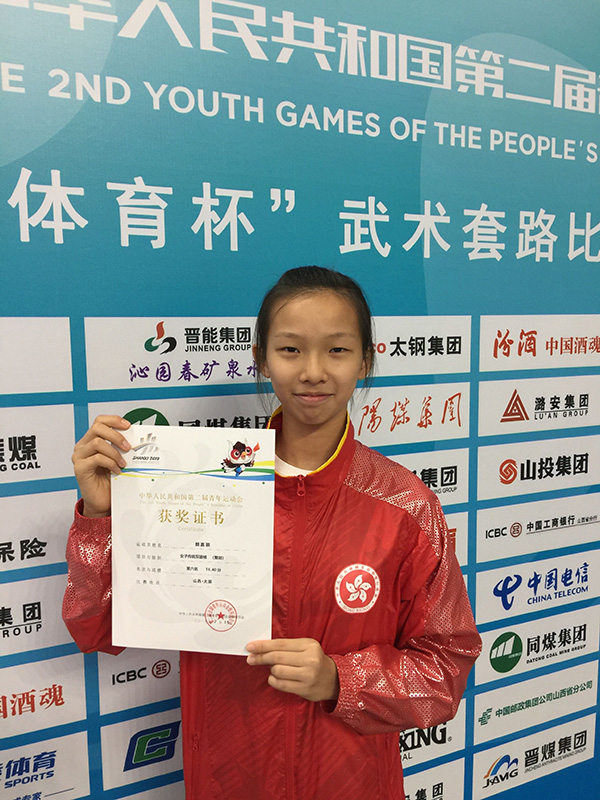 华人民共和国第二届
E 2ND YOUTH GAMES OF THE PEOPLE'S
体育杯”武术套路比
晋能集团
JINNENG GROUP
沁园春矿泉水
太钢集团
汾酒 中国酒魂
同煤集团
阳煤集团
潞安集团
LU'AN GROUP
焦煤
NG COAL
集团
山投集团
保险
ICBC 中国工商银行
中国电信
CHINA TELECOM
集团
同煤集团
DATONG COAL MINE GROUP
国酒魂
ICBC
中国邮政集团公司山西省分公司
体育
SPORTS
XING
晋煤集团
JINCHENG ANTHRACITE MINING GROUP
JAMG
SHANXI 2019
中华人民共和国第二届青年运动会
获奖证书
Certificate
女子传统双器械
第六名
山西·太原